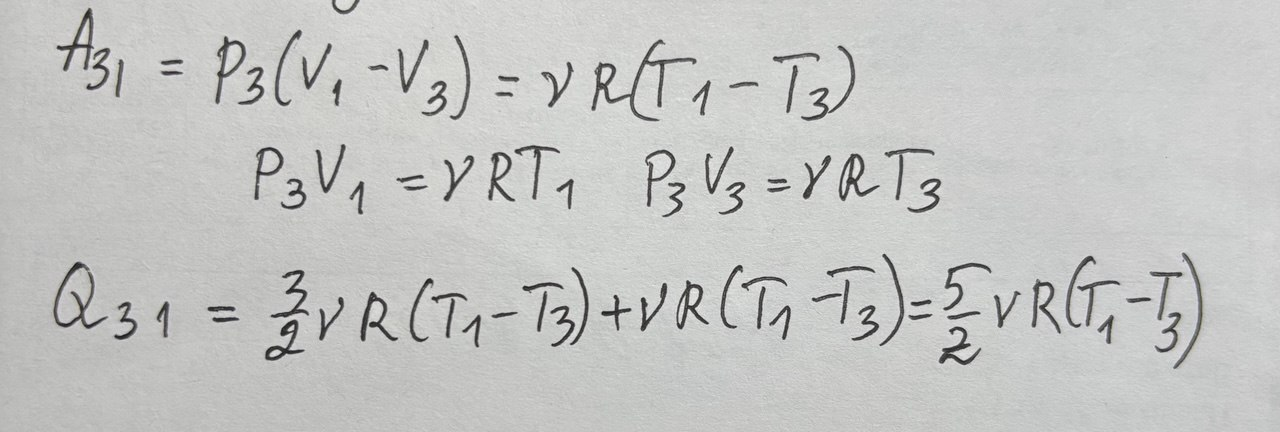 A₃₁ = P₃(V₁ - V₃) = νR(T₁ - T₃)
P₃V₁ = νRT₁ P₃V₃ = νRT₃
Q₃₁ = 3/2 νR(T₁ - T₃) + νR(T₁ - T₃) = 5/2 νR(T₁ - T₃)